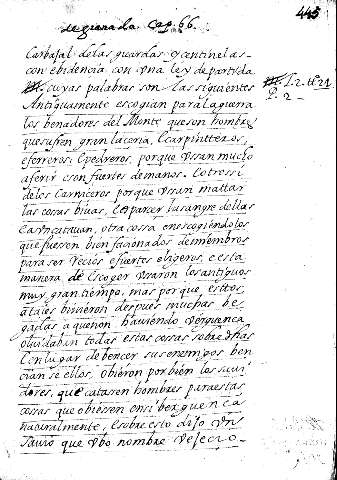 de granada. Cap. 66.
445
Carbajal de las guardas y centinelas-
con ebidencia con vna ley de partida
cuyas palabras son las siguientes
Antiguamente escogian para la guerra
los benadores del Monte que son hombres
que sufren gran laceria, Ecarpinteros,
eferreros, Epedreros, porque vssan mucho
a ferir e son fuertes de manos. E otrossi
de los Carniceros porque vssan mattar
las cossas biuas, E esparcer la sangre dellas
E aun catauan, otra cossa en escogiendolos
que fuessen bien facionados de miembros
para ser Recios e fuertes e ligeros, e esta
manera de Escoger vsaron los antiguos
muy gran tiempo, mas porque estos,
atales biuieron despues muchas be-
gadas a que non hauiendo verguenca
oluidaban todas estas cossas sobre dhas
E en lugar de bencer sus enemigos ben-
cian se ellos, obieron por bien los saui-
dores, que catassen hombres para estas
cossas que obiessen en si berguenca
naturalmente, E sobre esto dijo vn
sauio que vbo nombre vejecio-
P. 2.